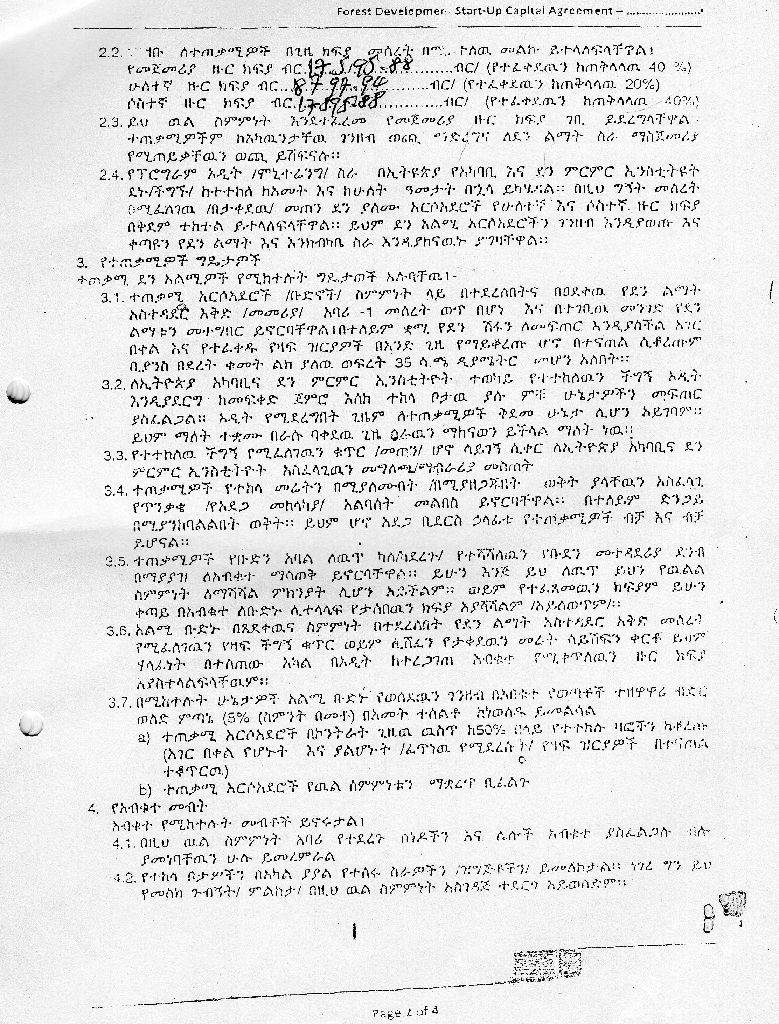 Forest Developmen Start-Up Capital Agreement –
2.2. ለተጠቃሚዎች በጊዜ ክፍያ መሰረት መልኩ ይተላለፍላቸዋል፤
የመጀመሪያ ዙር ክፍያ ብር 17,595.88 ብር/ (የተፈቀደዉን ከጠቅላላዉ 40 %)
ሁለተኛ ዙር ክፍያ ብር 8797.94 ብር/ (የተፈቀደዉን ከጠቅላላዉ 20%)
ሶስተኛ ዙር ክፍያ ብር ብር/ (የተፈቀደዉን ከጠቅላላዉ 40%)
2.3. ይህ ዉል ስምምነት እንደተፈረመ የመጀመሪያ ዙር ክፍያ ገቢ ይደረግላቸዋል
ተጠቃሚዎችም ከአካዉንታቸዉ ገንዘብ ወጪ ማድረግና ለደን ልማት ስራ ማስጀመሪያ
የሚጠይቃቸዉን ወጪ ይሸፍናሉ።
2.4. የፕሮግራም ኦዲት /ሞኒተሪንግ/ ስራ በኢትዮጵያ የአካባቢ እና ደን ምርምር ኢንስቲትዩት
ደኑ/ችግኙ/ ከተተከለ ከአመት እና ከሁለት ዓመታት በኋላ ይካሄዳል። በዚህ ግኝት መሰረት
በሚፈለገዉ /በታቀደዉ/ መጠን ደን ያለሙ አርሶአደሮች የሁለተኛ እና ሶስተኛ ዙር ክፍያ
በቅደም ተከተል ይተላለፍላቸዋል። ይህም ደን አልሚ አርሶአደሮችን ገንዘብ እንዲያወጡ እና
ቀጣዩን የደን ልማት እና እንክብካቤ ስራ እንዲያከናዉኑ ያግዛቸዋል።
3. የተጠቃሚዎች ግዴታዎች
ተጠቃሚ ደን አልሚዎች የሚከተሉት ግዴታዎች አሉባቸዉ፤-
3.1. ተጠቃሚ አርሶአደሮች /ቡድኖች/ ስምምነት ላይ በተደረሰበትና በፀደቀዉ የደን ልማት
አስተዳደር እቅድ /መመሪያ/ አባሪ -1 መሰረት ወጥ በሆነ እና በተገቢዉ መንገድ የደን
ልማቱን መተግበር ይኖርባቸዋል፤ በተለይም ቋሚ የደን ሽፋን ለመፍጠር እንዲያስችል አገር
በቀል እና የተፈቀዱ የዛፍ ዝርያዎች በአንድ ጊዜ የማይቆረጡ ሆኖ በተናጠል ሲቆረጡም
ቢያንስ በደረት ቁመት ልክ ያለዉ ወፍረት 35 ሳ.ሜ ዲያሜትር መሆን አለበት።
3.2. ለኢትዮጵያ አካባቢና ደን ምርምር ኢንስቲትዮት ተወካይ የተተከለዉን ችግኝ ኦዲት
እንዲያደርግ ከመፍቀድ ጀምሮ እስከ ተከላ ቦታዉ ያሉ ምቹ ሁኔታዎችን መፍጠር
ያስፈልጋል። ኦዲት የሚደረግበት ጊዜም ለተጠቃሚዎች ቅድመ ሁኔታ ሊሆን አይገባም።
ይህም ማለት ተቋሙ በራሱ ባቀደዉ ጊዜ ስራዉን ማከናወን ይችላል ማለት ነዉ።
3.3. የተተከለዉ ችግኝ የሚፈለገዉን ቁጥር /መጠን/ ሆኖ ሳይገኝ ሲቀር ለኢትዮጵያ አካባቢና ደን
ምርምር ኢንስቲትዮት አስፈላጊዉን መግለጫ/ማብራሪያ መስጠት
3.4. ተጠቃሚዎች የተከላ መሬትን በሚያለሙበት /በሚያዘጋጁበት ወቅት ያላቸዉን አስፈላጊ
የጥንቃቄ /የአደጋ መከላከያ/ አልባሳት መልበስ ይኖርባቸዋል። በተለይም ድንጋይ
በሚያንከባልልበት ወቅት። ይህም ሆኖ አደጋ ቢደርስ ኃላፊቱ የተጠቃሚዎች ብቻ እና ብቻ
ይሆናል።
3.5. ተጠቃሚዎች የቡድን አባል ለዉጥ ካለ/ካደረጉ/ የተሻሻለዉን የቡድን መተዳደሪያ ደንብ
በማያያዝ ለአብቁተ ማሳወቅ ይኖርባቸዋል። ይሁን እንጅ ይህ ለዉጥ ይህን የዉል
ስምምነት ለማሻሻል ምክንያት ሊሆን አይችልም። ወይም የተፈጸመዉን ክፍያም ይሁን
ቀጣይ በአብቁተ ለቡድኑ ሊተላለፍ የታሰበዉን ክፍያ አያሻሽልም /አይለዉጥም/።
3.6. አልሚ ቡድኑ በጸደቀዉና ስምምነት በተደረሰበት የደን ልማት አስተዳደር እቅድ መሰረት
የሚፈለገዉን የዛፍ ችግኝ ቁጥር ወይም ሊሸፈን የታቀደዉን መሬት ሳይሸፍን ቀርቶ ይህም
ሃላፊነት በተሰጠው አካል በኦዲት ከተረጋገጠ አብቁተ የሚቀጥለዉን ዙር ክፍያ
አያስተላልፍላቸዉም።
3.7. በሚከተሉት ሁኔታዎች አልሚ ቡድኑ የወሰደዉን ገንዘብ በአብቁተ የወጣቶች ተዘዋዋሪ ብድር
ወለድ ምጣኔ (5% (ስምንት በመቶ) በአመት ተሰልቶ ከነወለዱ ይመልሳል
a) ተጠቃሚ አርሶአደሮች በኮንትራት ጊዜዉ ዉስጥ ከ50% በላይ የተተከሉ ዛፎችን ከቆረጡ
(አገር በቀል የሆኑት እና ያልሆኑት /ፈጥነዉ የሚደረሱ/ የዛፍ ዝርያዎች በተናጠል
ተቆጥርዉ)
b) ተጠቃሚ አርሶአደሮች የዉል ስምምነቱን ማቋረጥ ቢፈልጉ
4. የአብቁተ መብት
አብቁተ የሚከተሉት መብቶች ይኖሩታል፤
4.1. በዚህ ዉል ስምምነት አባሪ የተደረጉ ሰነዶችን እና ሌሎች አብቁተ ያስፈልጋሉ ብሎ
ያመነባቸዉን ሁሉ ይመረምራል
4.2. የተከላ ቦታዎችን በአካል ያያል የተሰሩ ስራዎችን /ዝግጅቶችን/ ይመለከታል። ነገረ ግን ይህ
የመስክ ጉብኝት/ ምልከታ/ በዚህ ዉል ስምምነት አስገዳጅ ተደርጎ አይወሰድም።
Page 2 of 4